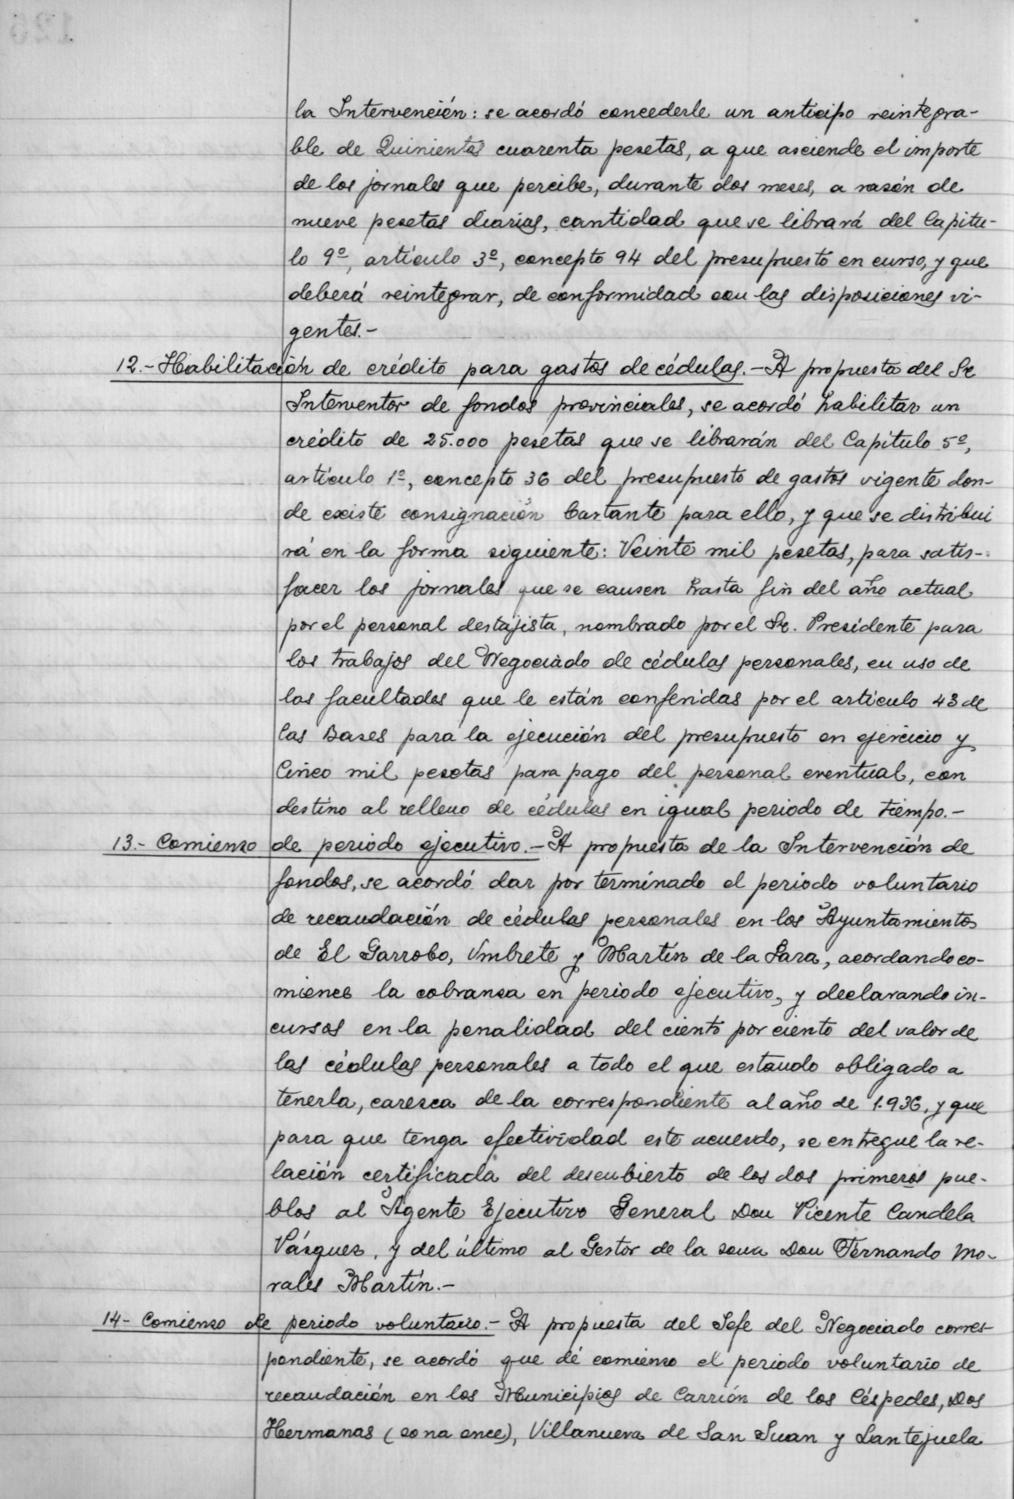 la Intervención: se acordó concederle un anticipo reintegra-
ble de Quinientas cuarenta pesetas, a que asciende el importe
de los jornales que percibe, durante dos meses, a razón de
nueve pesetas diarias, cantidad que se librará del Capítu-
lo 9º, artículo 3º, concepto 94 del presupuesto en curso, y que
deberá reintegrar, de conformidad con las disposiciones vi-
gentes.-
12.- Habilitación de crédito para gastos de cédulas.- A propuesta del Sr
Interventor de fondos provinciales, se acordó habilitar un
crédito de 25.000 pesetas que se librarán del Capítulo 5º,
artículo 1º, concepto 36 del presupuesto de gastos vigente don-
de existe consignación bastante para ello, y que se distribui
rá en la forma siguiente: Veinte mil pesetas, para satis-
facer los jornales que se causen hasta fin del año actual
por el personal destajista, nombrado por el Sr. Presidente para
los trabajos del Negociado de cédulas personales, en uso de
las facultades que le están conferidas por el artículo 43 de
las Bases para la ejecución del presupuesto en ejercicio y
Cinco mil pesetas para pago del personal eventual, con
destino al relleno de cédulas en igual periodo de tiempo.-
13.- Comienzo de periodo ejecutivo.- A propuesta de la Intervención de
fondos, se acordó dar por terminado el periodo voluntario
de recaudación de cédulas personales en los Ayuntamientos
de El Garrobo, Umbrete y Martín de la Jara, acordando co-
mience la cobranza en periodo ejecutivo, y declarando in-
cursos en la penalidad del ciento por ciento del valor de
las cédulas personales a todo el que estando obligado a
tenerla, carezca de la correspondiente al año de 1.936, y que
para que tenga efectividad este acuerdo, se entregue la re-
lación certificada del descubierto de los dos primeros pue-
blos al Agente Ejecutivo General Don Vicente Candela
Vásquez, y del último al Gestor de la zona Don Fernando Mo-
rales Martín.-
14- Comienzo de periodo voluntario.- A propuesta del Jefe del Negociado corres-
pondiente, se acordó que dé comienzo el periodo voluntario de
recaudación en los Municipios de Carrión de los Céspedes, Dos
Hermanas (zona once), Villanueva de San Juan y Lantejuela